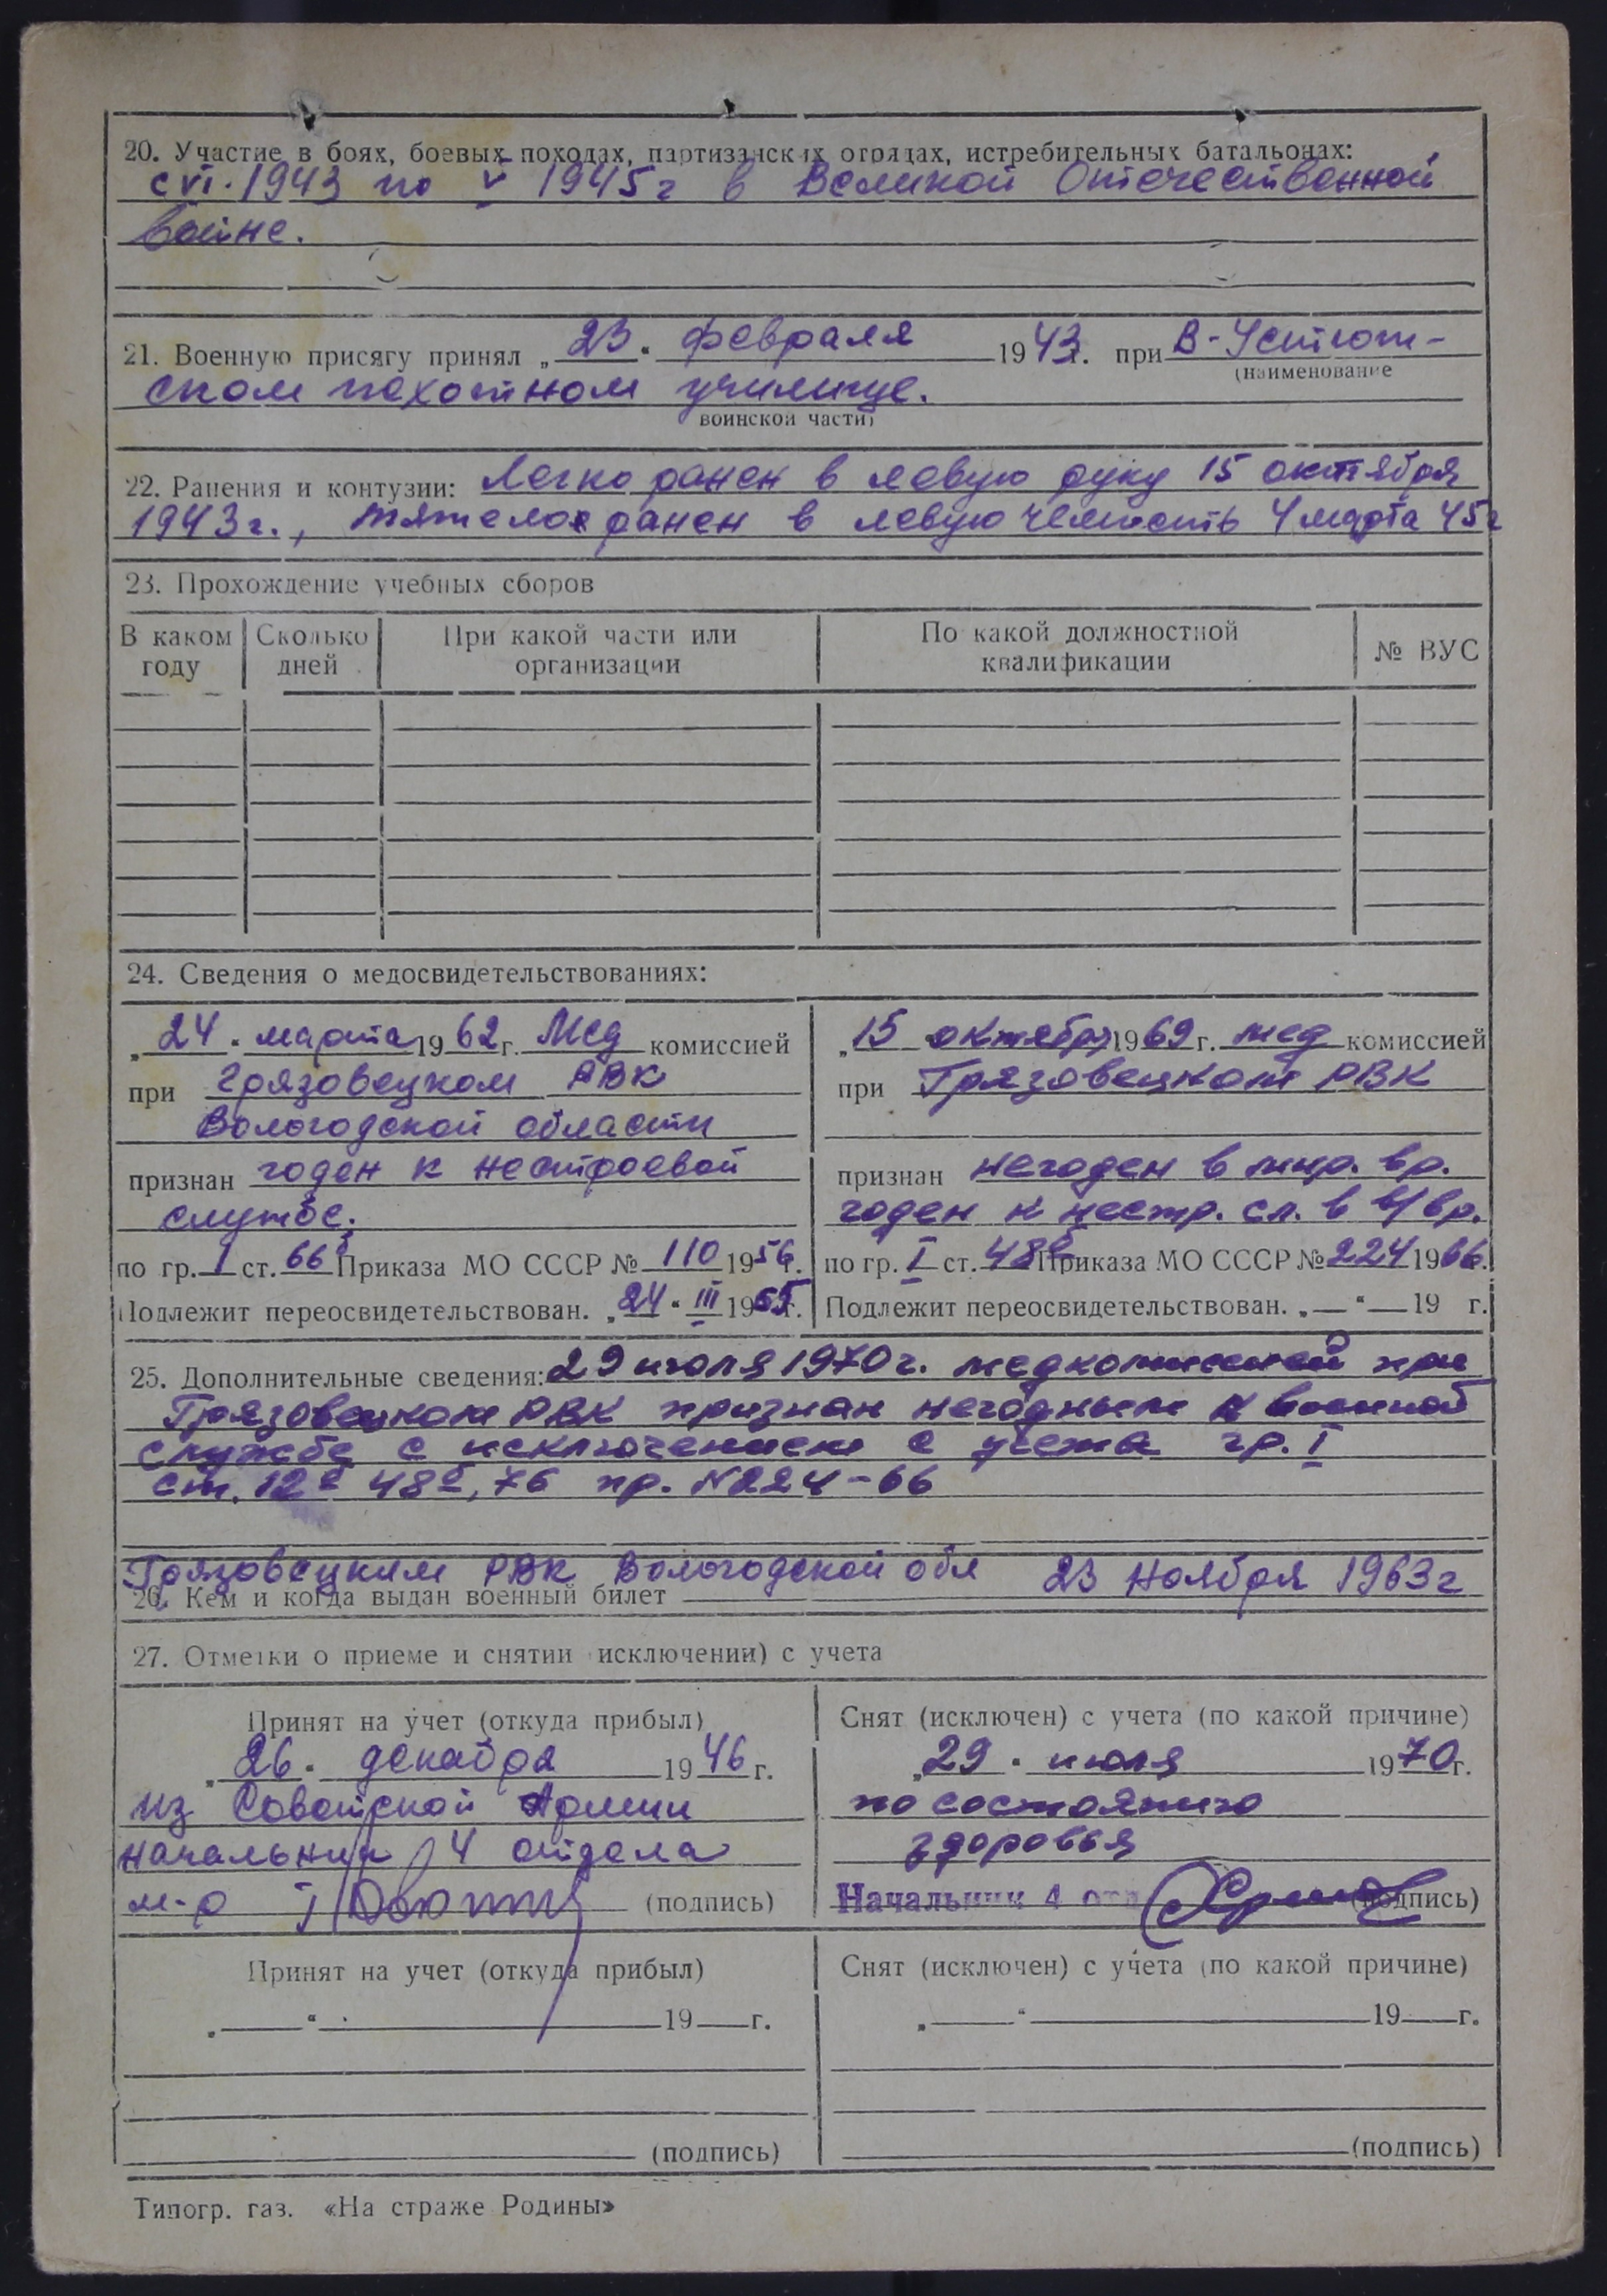 20. Участие в боях, боевых походах, партизанских отрядах, истребительных батальонах:
с VI. 1943 по V 1945 г в Великой Отечественной
войне.
21. Военную присягу принял „23“ февраля 1943 г. при В-Устюг-
(наименование
ском пехотном училище.
воинской части)
22. Ранения и контузии: Легко ранен в левую руку 15 октября
1943 г., тяжело ранен в левую челюсть 4 марта 45 г
23. Прохождение учебных сборов
В каком году | Сколько дней | При какой части или организации | По какой должностной квалификации | № ВУС
24. Сведения о медосвидетельствованиях:
„24“ марта 1962 г. Мед комиссией
при Грязовецком РВК
Вологодской области
признан годен к нестроевой
службе.
по гр. I ст. 66б Приказа МО СССР № 110 1956 г.
Подлежит переосвидетельствован. „24“ III 1965 г.
„15 октября 1969 г. мед комиссией
при Грязовецком РВК
признан негоден в мир. вр.
годен к нестр. сл. в в/вр.
по гр. I ст. 48б Приказа МО СССР № 224 1966 г.
Подлежит переосвидетельствован. „—“ — 19 г.
25. Дополнительные сведения: 29 июля 1970 г. медкомиссией при
Грязовецком РВК признан негодным к военной
службе с исключением с учета гр. I
ст. 12 48, 76 пр. N 224-66
Грязовецким РВК Вологодской обл 23 ноября 1963 г
26. Кем и когда выдан военный билет
27. Отметки о приеме и снятии исключении) с учета
Принят на учет (откуда прибыл)
„26“ декабря 1946 г.
из Советской Армии
начальник 4 отдела
м-р (подпись)
Снят (исключен) с учета (по какой причине)
„29“ июля 1970 г.
по состоянию
здоровья
Начальник 4 отд (подпись)
Принят на учет (откуда прибыл)
„—“ 19 г.
(подпись)
Снят (исключен) с учета (по какой причине)
„—“ 19 г.
(подпись)
Типогр. газ. «На страже Родины»